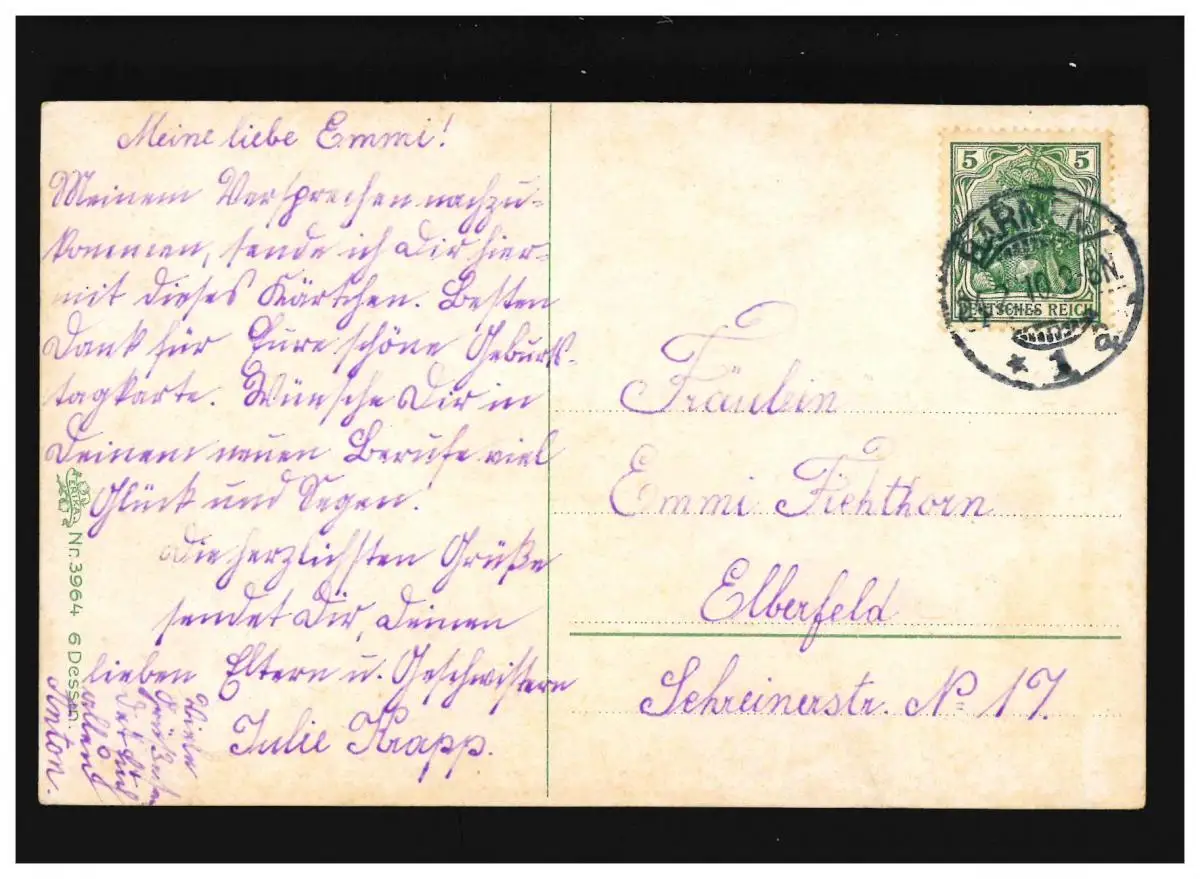 Meine liebe Emmi!
Meinem Versprechen nachzu-
kommen, sende ich Dir hier-
mit dieses Kärtchen. Besten
Dank für Eure schöne Geburts-
tagkarte. Wünsche Dir in
Deinem neuen Berufe viel
Glück und Segen.
Die herzlichsten Grüße
sendet Dir, Deinen
lieben Eltern u. Geschwistern
Julie Krapp.
Viele
Grüße
Anton.
ERIKA
Nr. 3964 6 Dessen.
5 5
DEUTSCHES REICH
BARMEN
7.10
* 1 a
Fräulein
Emmi Fichthorn
Elberfeld
Schreinerstr. No 17.